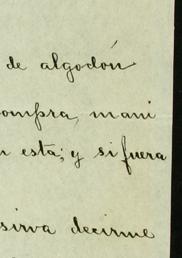 de algodón
ompra, mani
n esta; y si fuera
sirva decirme